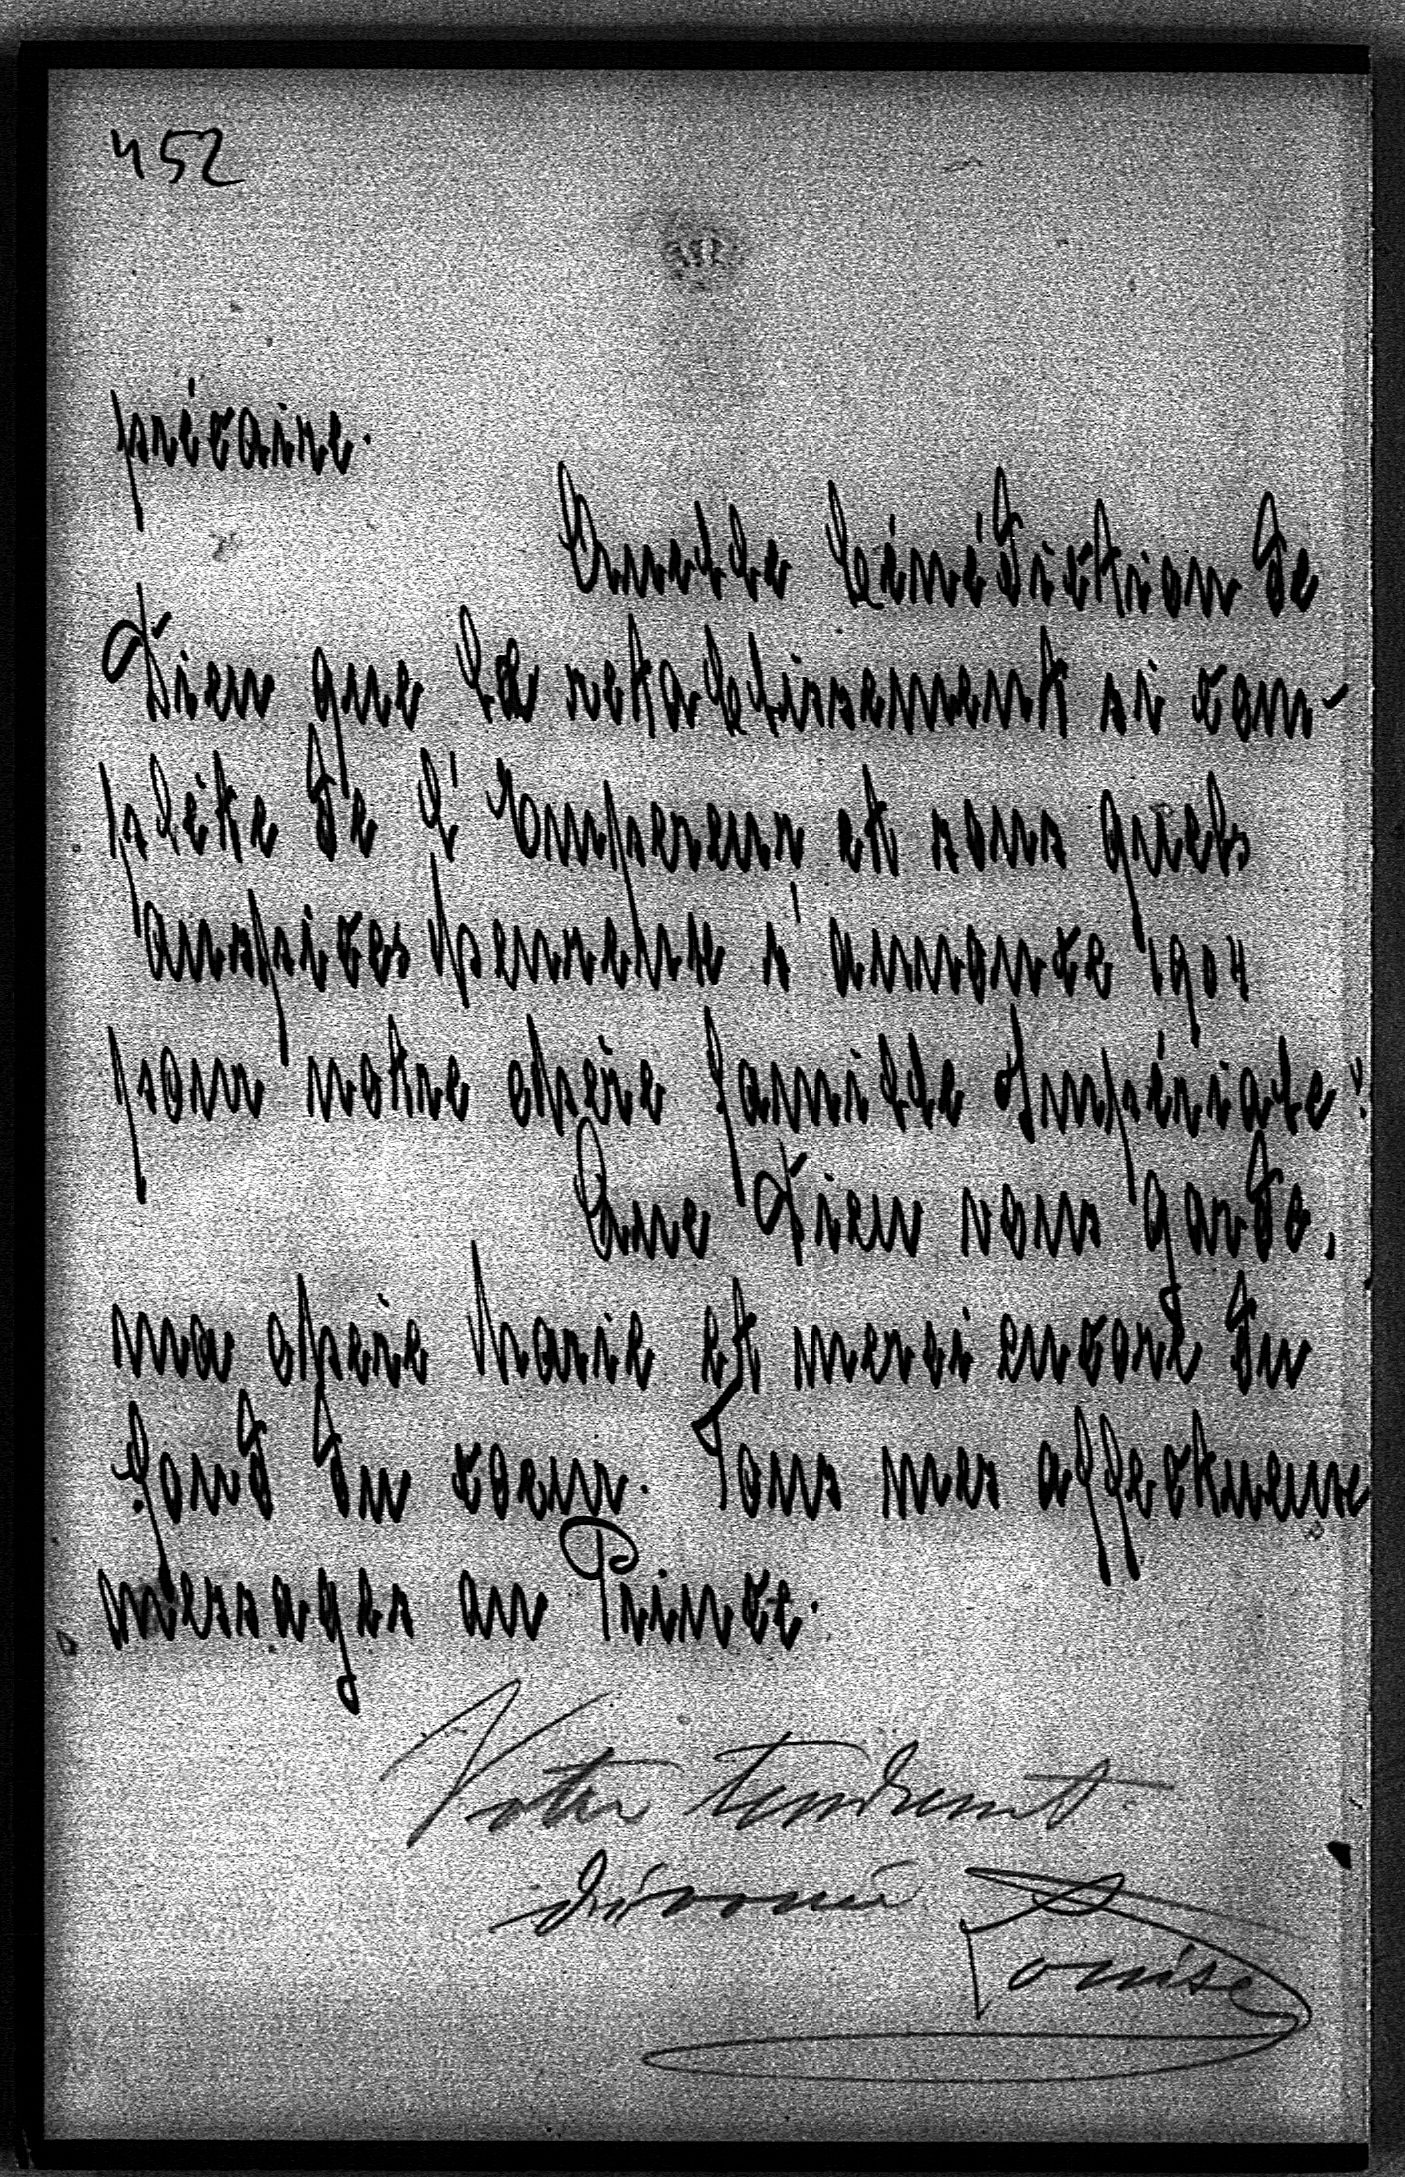 452
précaire.
Quelle bénédiction de
Dieu que le rétablissement si com-
plète de l'Empereur et sous quels
auspices heureux s'annonce 1904
pour notre chère famille Impériale!
Que Dieu vous garde,
ma chère Marie et merci encore du
fond du coeur. Tous mes affectueux
messages au Prince.
Votre tendrement
dévouée Louise